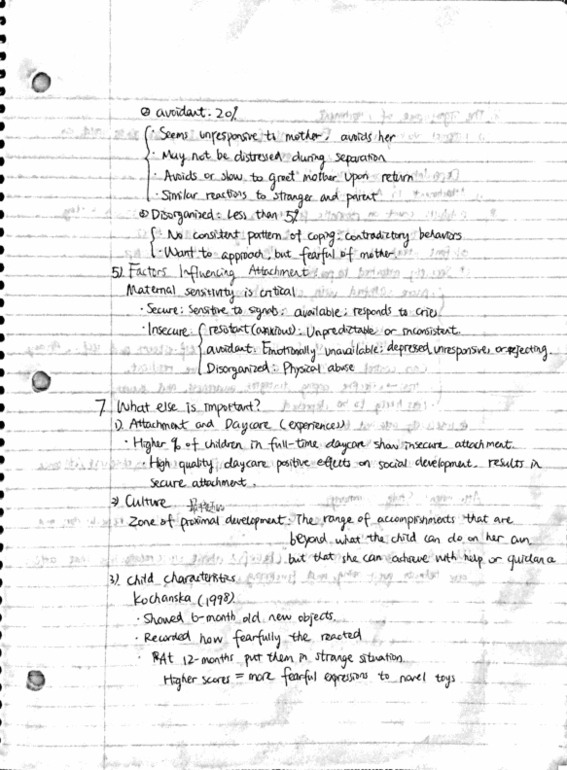 ② avoidant. 20%
· Seems unresponsive to mother, avoids her
· May not be distressed during separation
· Avoids or slow to greet mother upon return
· Similar reactions to stranger and parent
③ Disorganized: Less than 5%
· No consistent pattern of coping: contradictory behaviors
· Want to approach, but fearful of mother
5). Factors Influencing Attachment
Maternal sensitivity is critical
· Secure: sensitive to signals: available; responds to cries
· Insecure: resistant (anxious): Unpredictable or inconsistent.
avoidant: Emotionally unavailable: depressed, unresponsive, or rejecting.
Disorganized: Physical abuse
7. What else is important?
1). Attachment and Daycare (experiences)
· Higher % of children in full-time daycare show insecure attachment.
· High quality daycare positive effects on social development. results in
secure attachment.
2). Culture
Zone of proximal development: The range of accomplishments that are
beyond what the child can do on her own,
but that she can achieve with help or guidance
3). Child characteristics
Kochanska (1998)
· Showed 6-month old new objects.
· Recorded how fearfully the reacted
· At 12-months put them in strange situation
Higher scores = more fearful expressions to novel toys